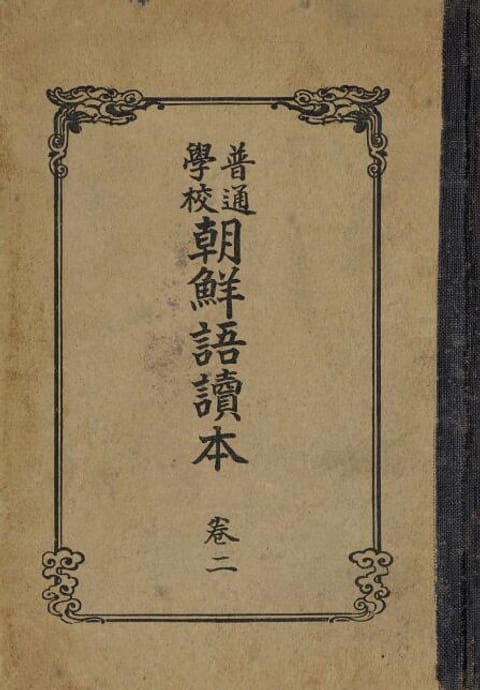 普通
學校
朝鮮語讀本
卷二